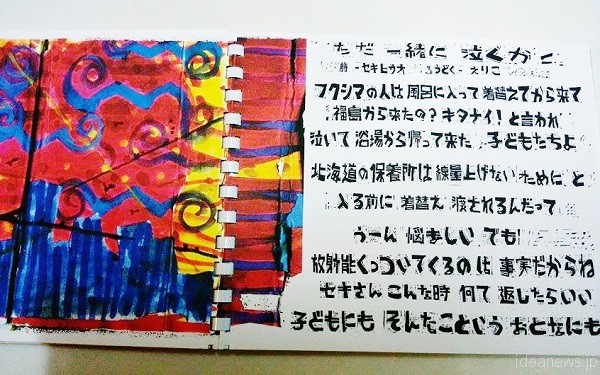 ただ 一緒に 泣くかな
詩-セキヒサオ ろうどく-えりこ
フクシマの人は 風呂に入って 着替えてから来て
福島から来たの？ キタナイ！ と言われ
泣いて 浴場から帰って来た 子どもたちよ
北海道の 保養所は 線量上げない ために と
入る前に 着替え 渡されるんだって
うーん 悩ましい でも
放射能くっついてくるの は 事実だからね
セキさん こんな時 何て 返したらいい
子どもにも そんなこという おとなにも
ideanews.jp